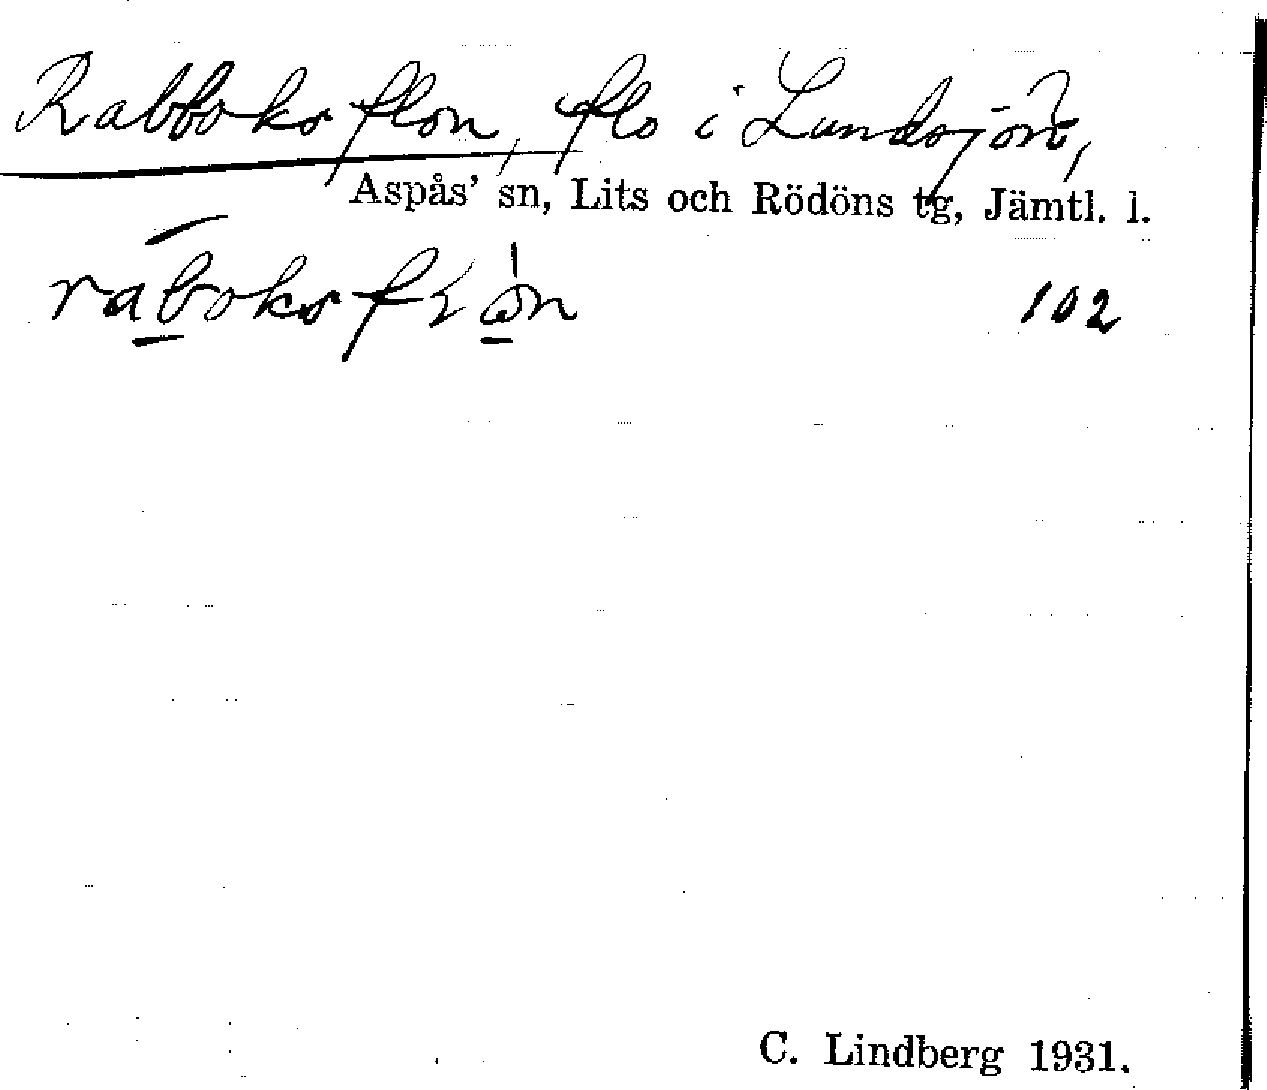 Rabboksflon, flo i Lundsjön,
Aspås' sn, Lits och Rödöns tg, Jämtl. l.
102
C. Lindberg 1931.